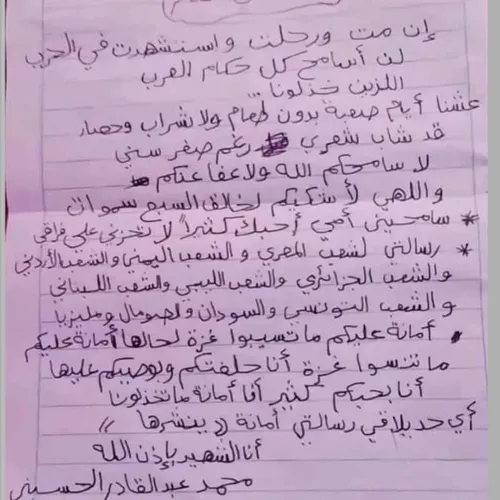 إن مت ورحلت واستشهدت في الحرب
لن أسامح كل حكام العرب
اللزين خذلونا...
عشنا أيام صعبة بدون طعام ولا شراب وحصار
قد شاب شعري رغم صغر سني
لا سامحكم الله ولا عفا عنكم
واللهي لأشكيكم لخالق السبع سموات
* سامحيني أمي أحبك كثيراً لا تحزني علي فراقي
* رسالتي لشعب المصري والشعب اليمني والشعب الأردني
والشعب الجزائري والشعب الليبي والشعب اللبناني
والشعب التونسي والسودان ولصومال ومليزيا
أمانة عليكم ما تسيبوا غزة لحالها أمانة عليكم
ما تنسوا غزة أنا حلفتكم وبوصيكم عليها
أنا بحبكم كثير أنا أمانة ما تخذلونا
أي حد يلاقي رسالتي أمانة (( ينشرها ))
أنا الشهيد بإذن الله
محمد عبد القادر الحسيني